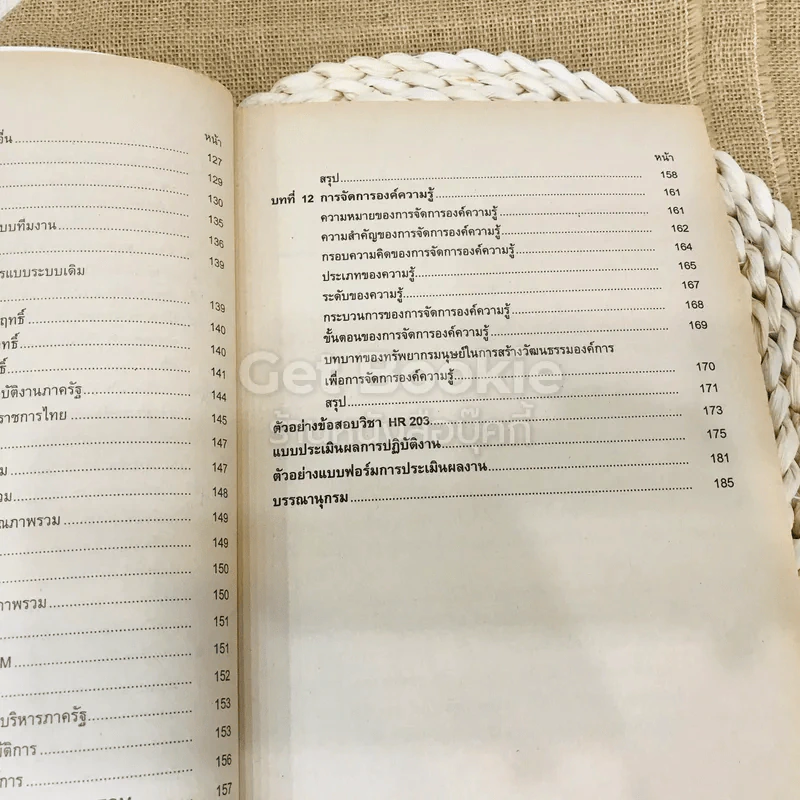 หน้า
127
129
130
135
136
139
139
140
140
141
144
145
147
147
148
149
149
150
150
151
151
152
153
155
156
157
หน้า
สรุป 158
บทที่ 12 การจัดการองค์ความรู้ 161
ความหมายของการจัดการองค์ความรู้ 161
ความสำคัญของการจัดการองค์ความรู้ 162
กรอบความคิดของการจัดการองค์ความรู้ 164
ประเภทของความรู้ 165
ระดับของความรู้ 167
กระบวนการของการจัดการองค์ความรู้ 168
ขั้นตอนของการจัดการองค์ความรู้ 169
บทบาทของทรัพยากรมนุษย์ในการสร้างวัฒนธรรมองค์การ
เพื่อการจัดการองค์ความรู้ 170
สรุป 171
ตัวอย่างข้อสอบวิชา HR 203 173
แบบประเมินผลการปฏิบัติงาน 175
ตัวอย่างแบบฟอร์มการประเมินผลงาน 181
บรรณานุกรม 185
Get Bookie
ร้านหนังสือบุ๊คกี้